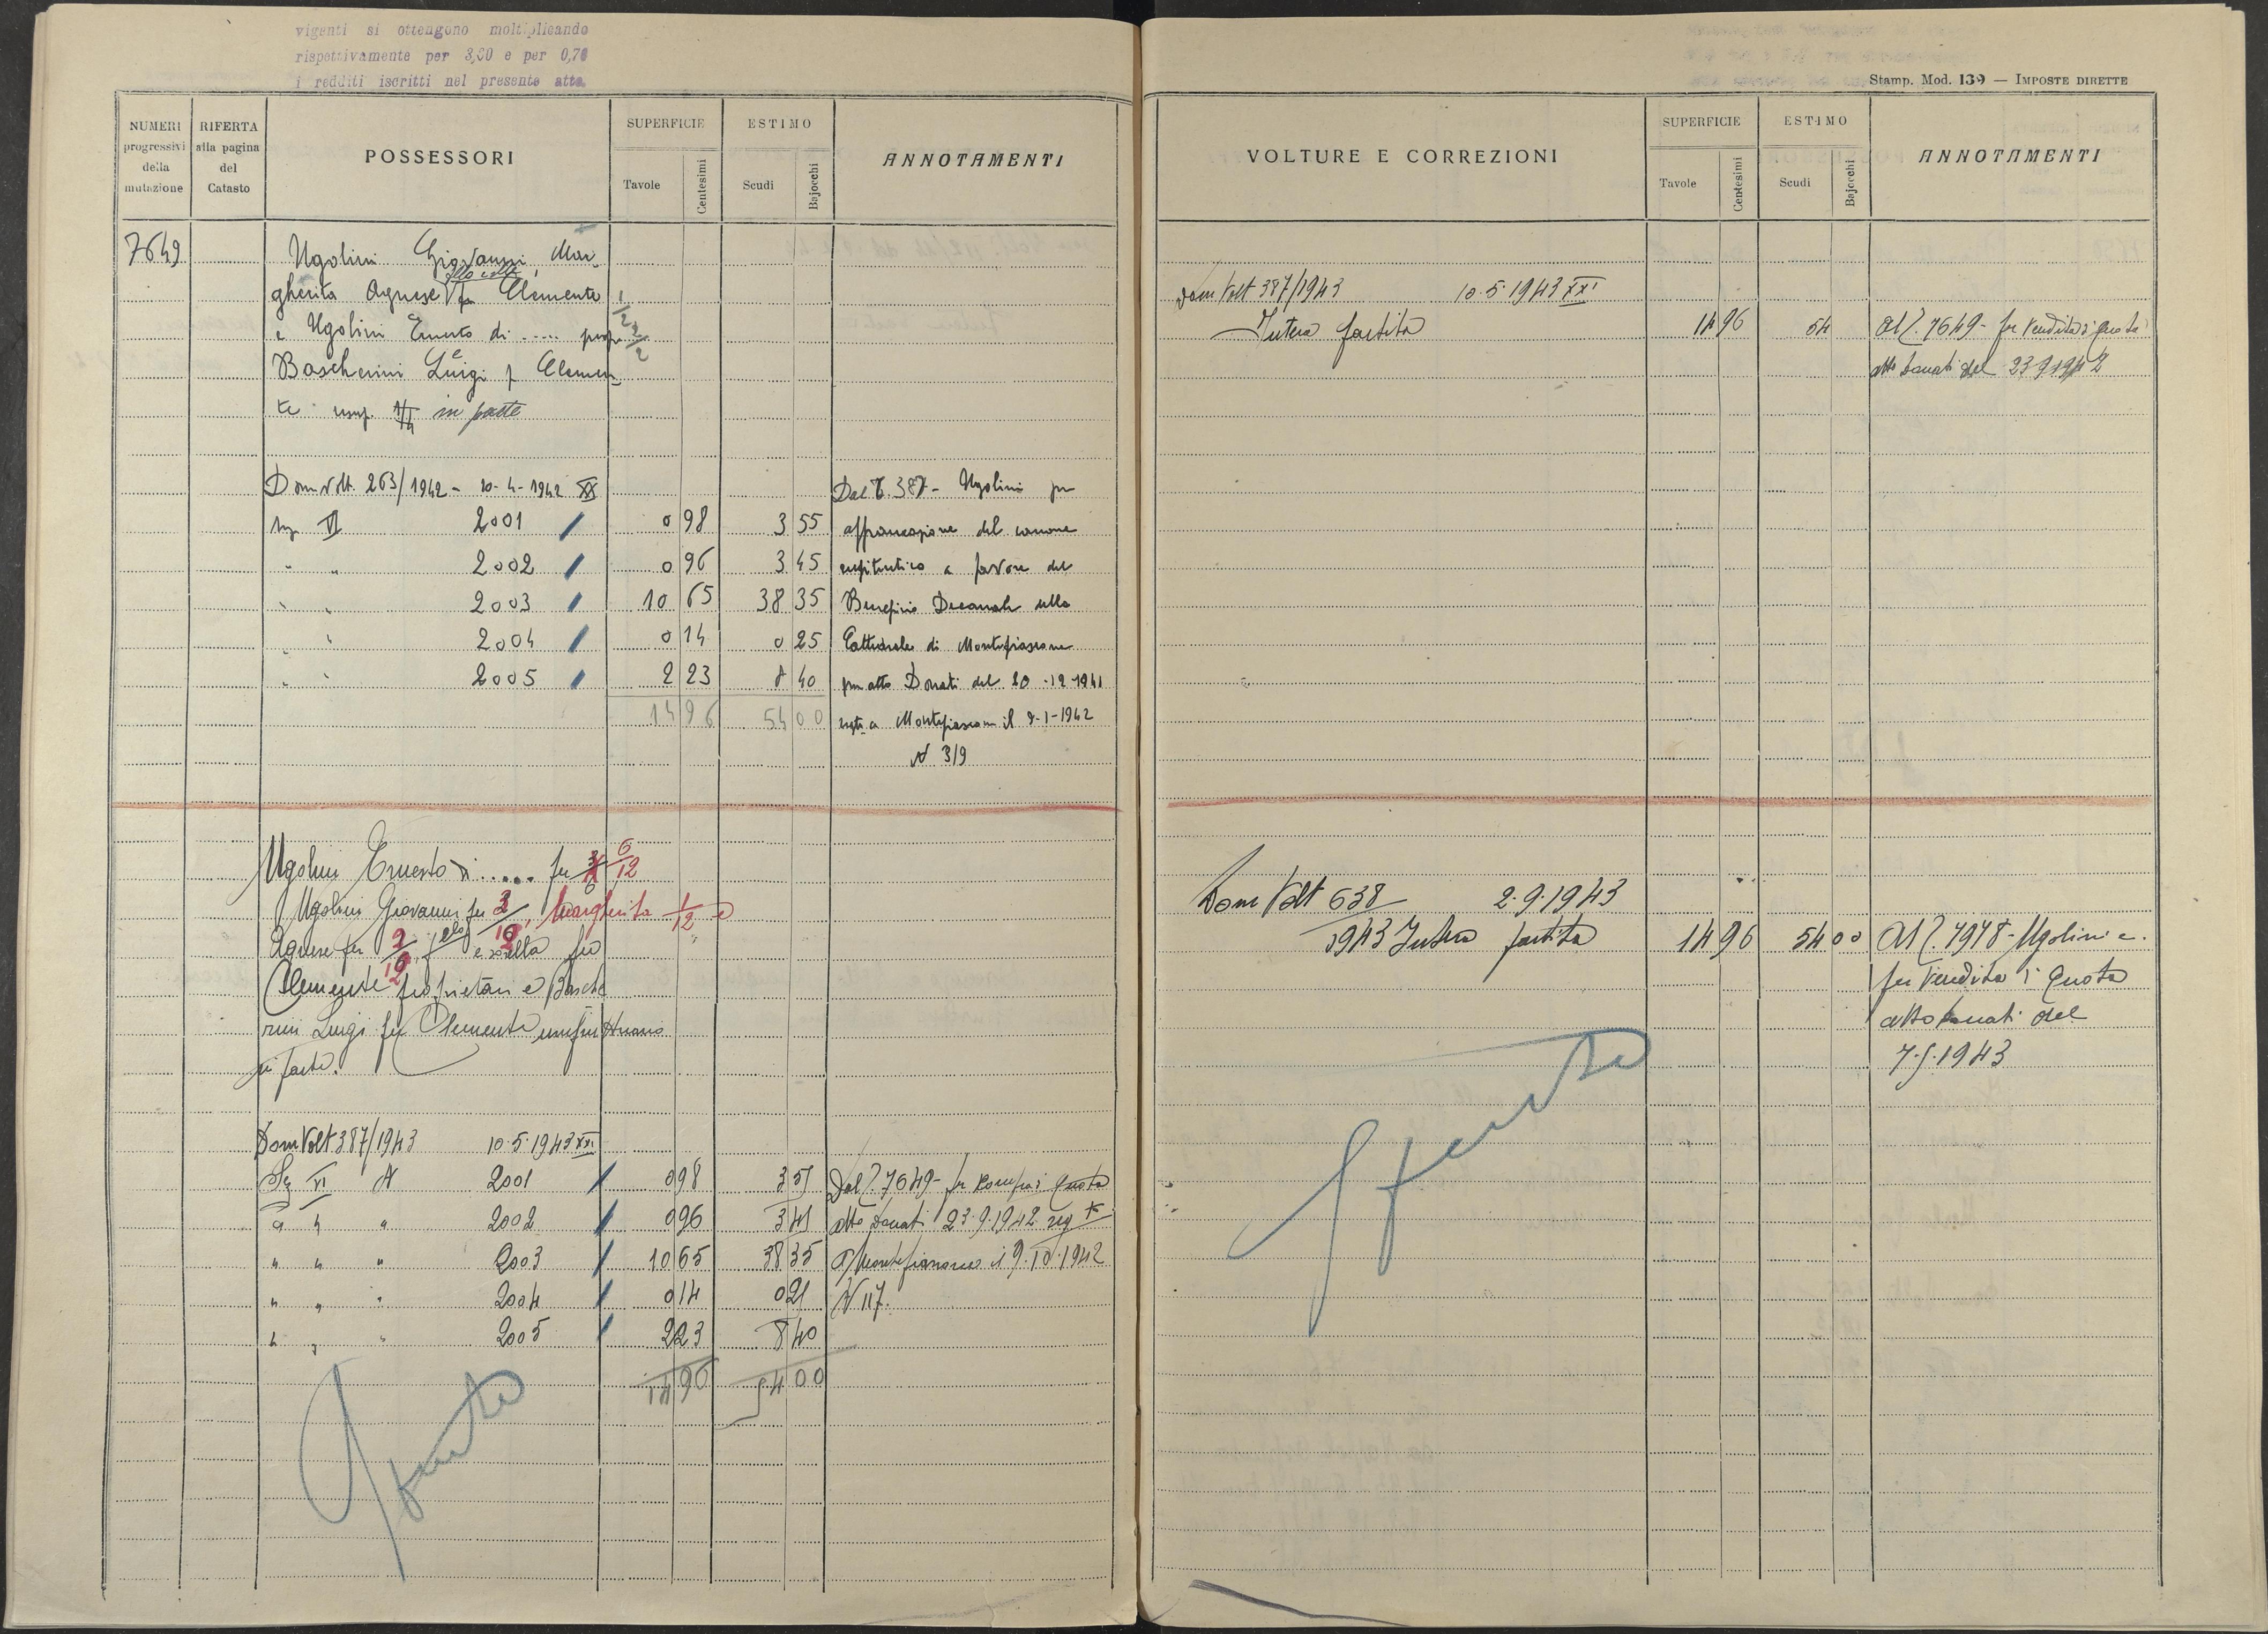 vigenti si ottengono moltiplicando
rispettivamente per 3,00 e per 0,70
i redditi iscritti nel presente atto.
NUMERI progressivi della mutazione
RIFERTA alla pagina del Catasto
POSSESSORI
SUPERFICIE
Tavole Centesimi
ESTIMO
Scudi Bajocchi
ANNOTAMENTI
7649
Ugolini Giovanni, Mar-
gherita Agnese fu Clemente 1/2
e Ugolini Ernesto di ..... prop.
Boscherini Luigi f Clemen-
te usuf. in parte
Dom Volt. 263/1942 - 20-4-1942 XX
Sez VI 2001 0 98 3 55
" " 2002 0 96 3 45
" " 2003 10 65 38 35
" " 2004 0 14 0 25
" " 2005 2 23 8 40
14 96 54 00
Dal P. 387 - Ugolini per
affrancazione del canone
enfiteutico a favore del
Beneficio Decanale della
Cattedrale di Montefiascone
per atto Donati del 20-12-1941
regto a Montefiascone il 9-1-1942
N 319
Ugolini Ernesto di ..... per 6/12
Ugolini Giovanni per , Margherita 1/12 e
Agnese per e sorella fu
Clemente proprietari e Bosche
rini Luigi fu Clemente usufruttuario
in parte.
Dom Volt 387/1943 10.5.1943 XXI
Sez VI N 2001 0 98 3 55
" " " 2002 0 96 3 45
" " " 2003 10 65 38 35
" " " 2004 0 14 0 25
" " " 2005 2 23 8 40
14 96 54 00
Dal P. 7649 - per compra i quota
atto Donati 23.9.1942 reg to
a Montefiascone il 9.10.1942
N 117.
Spento
Stamp. Mod. 139 — IMPOSTE DIRETTE
VOLTURE E CORREZIONI
SUPERFICIE
Tavole Centesimi
ESTIMO
Scudi Bajocchi
ANNOTAMENTI
Dom Volt 387/1943 10.5.1943 XXI
Intera partita 14 96 54
Al P. 7649 - per vendita i quota
atto Donati del 23.9.1942
Dom Volt 638 2.9.1943
1943 Intera partita 14 96 54 00
Al P. 7978 - Ugolini e.
per vendita i quota
atto Donati del
7.5.1943
Spento